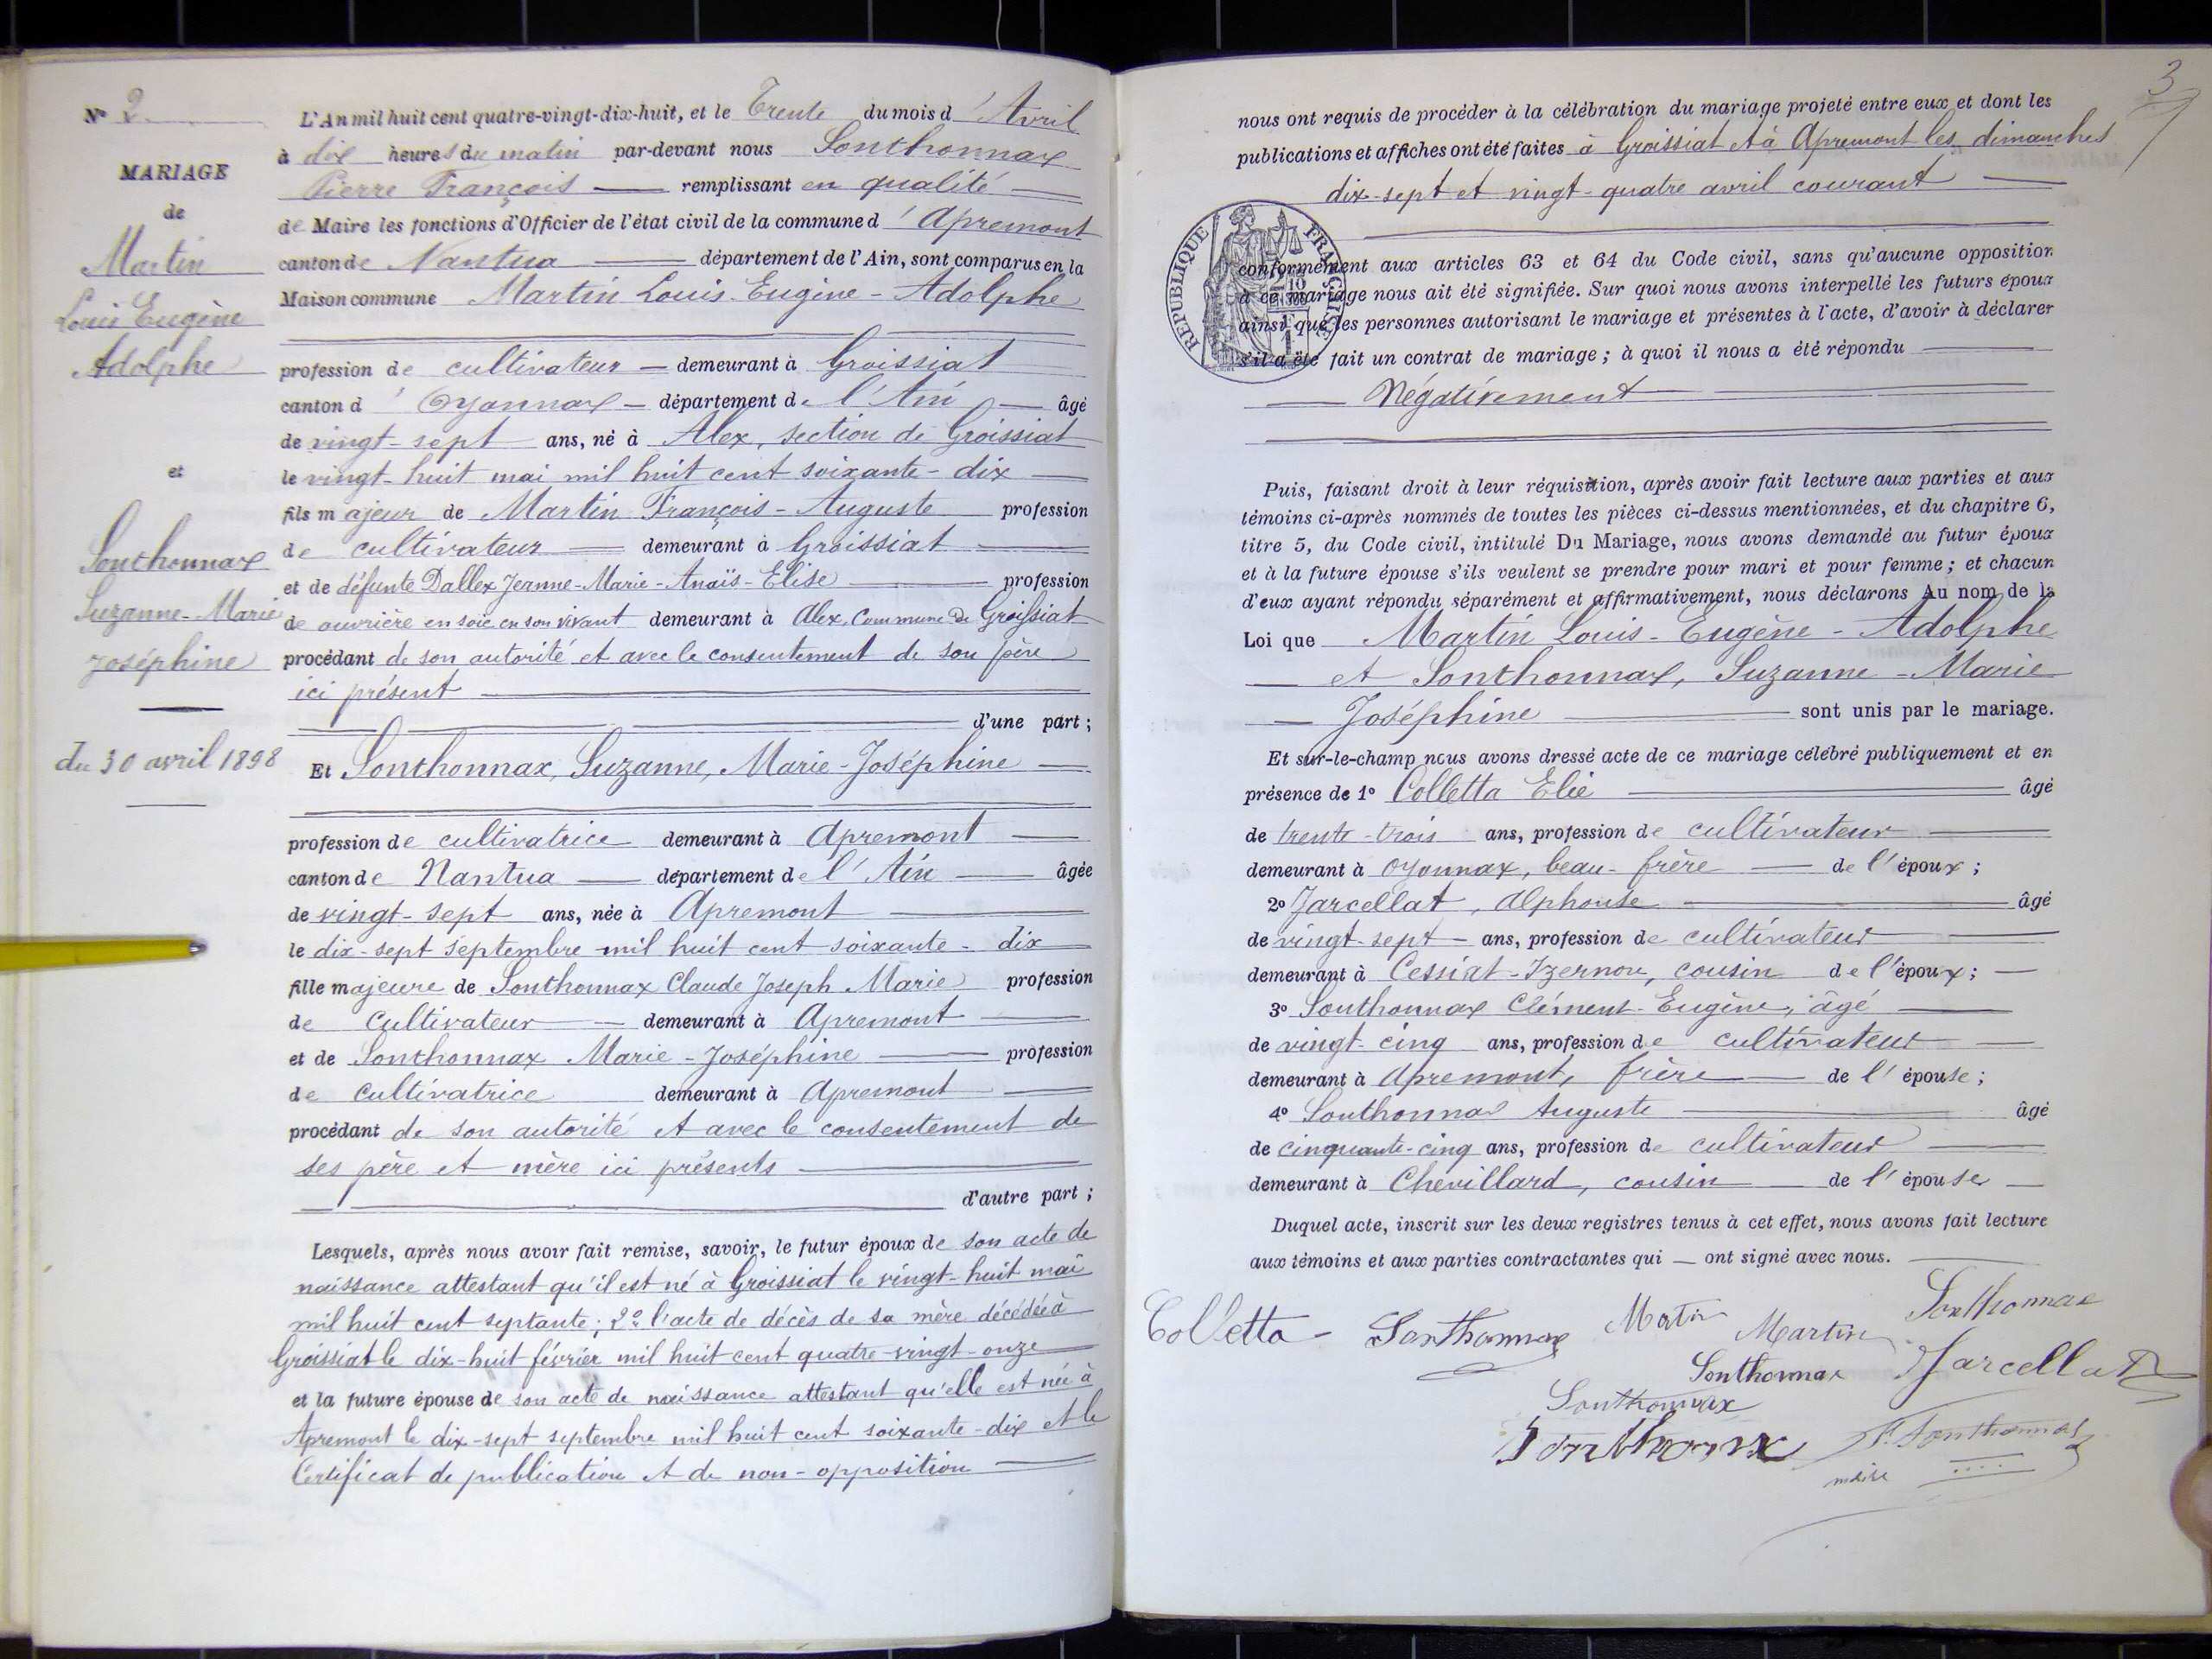 N° 2.
MARIAGE
de
Martin
Louis Eugène
Adolphe
et
Sonthonnax
Suzanne-Marie
Joséphine
du 30 avril 1898
L'An mil huit cent quatre-vingt-dix-huit, et le Trente du mois d'Avril
à dix heures du matin par-devant nous Sonthonnax
Pierre François remplissant en qualité
de Maire les fonctions d'Officier de l'état civil de la commune d'Apremont
canton de Nantua département de l'Ain, sont comparus en la
Maison commune Martin Louis-Eugène-Adolphe
profession de cultivateur demeurant à Groissiat
canton d'Oyonnax département de l'Ain âgé
de vingt-sept ans, né à Alex, section de Groissiat
le vingt-huit mai mil huit cent soixante-dix
fils majeur de Martin François-Auguste profession
de cultivateur demeurant à Groissiat
et de défunte Dallex Jeanne-Marie-Anaïs-Elise profession
de ouvrière en soie en son vivant demeurant à Alex, Commune de Groissiat
procédant de son autorité et avec le consentement de son père
ici présent
d'une part ;
Et Sonthonnax, Suzanne, Marie-Joséphine
profession de cultivatrice demeurant à Apremont
canton de Nantua département de l'Ain âgée
de vingt-sept ans, née à Apremont
le dix-sept septembre mil huit cent soixante-dix
fille majeure de Sonthonnax Claude Joseph Marie profession
de Cultivateur demeurant à Apremont
et de Sonthonnax Marie-Joséphine profession
de Cultivatrice demeurant à Apremont
procédant de son autorité et avec le consentement de
ses père et mère ici présents
d'autre part ;
Lesquels, après nous avoir fait remise, savoir, le futur époux de son acte de
naissance attestant qu'il est né à Groissiat le vingt-huit mai
mil huit cent septante ; 2° l'acte de décès de sa mère décédée à
Groissiat le dix-huit février mil huit cent quatre-vingt-onze
et la future épouse de son acte de naissance attestant qu'elle est née à
Apremont le dix-sept septembre mil huit cent soixante-dix et le
Certificat de publication et de non-opposition
3
nous ont requis de procéder à la célébration du mariage projeté entre eux et dont les
publications et affiches ont été faites à Groissiat et à Apremont les dimanches
dix-sept et vingt-quatre avril courant
REPUBLIQUE FRANÇAISE
conformément aux articles 63 et 64 du Code civil, sans qu'aucune opposition
à ce mariage nous ait été signifiée. Sur quoi nous avons interpellé les futurs époux
ainsi que les personnes autorisant le mariage et présentes à l'acte, d'avoir à déclarer
s'il a été fait un contrat de mariage ; à quoi il nous a été répondu
Négativement
Puis, faisant droit à leur réquisition, après avoir fait lecture aux parties et aux
témoins ci-après nommés de toutes les pièces ci-dessus mentionnées, et du chapitre 6,
titre 5, du Code civil, intitulé Du Mariage, nous avons demandé au futur époux
et à la future épouse s'ils veulent se prendre pour mari et pour femme ; et chacun
d'eux ayant répondu séparément et affirmativement, nous déclarons Au nom de la
Loi que Martin Louis-Eugène-Adolphe
et Sonthonnax, Suzanne-Marie
Joséphine sont unis par le mariage.
Et sur-le-champ nous avons dressé acte de ce mariage célébré publiquement et en
présence de 1° Colletta Elie âgé
de trente-trois ans, profession de cultivateur
demeurant à Oyonnax, beau-frère de l'époux ;
2° Jarcellat, Alphonse âgé
de vingt-sept ans, profession de cultivateur
demeurant à Cessiat-Izernore, cousin de l'époux ;
3° Sonthonnax Clément-Eugène, âgé
de vingt-cinq ans, profession de cultivateur
demeurant à Apremont, frère de l'épouse ;
4° Sonthonnax Auguste âgé
de cinquante-cinq ans, profession de cultivateur
demeurant à Chevillard, cousin de l'épouse
Duquel acte, inscrit sur les deux registres tenus à cet effet, nous avons fait lecture
aux témoins et aux parties contractantes qui ont signé avec nous.
Colletta Sonthonnax Martin Martin Sonthonnax
Sonthonnax Jarcellat
Sonthonnax
Sonthonnx F. Sonthonnax
maire